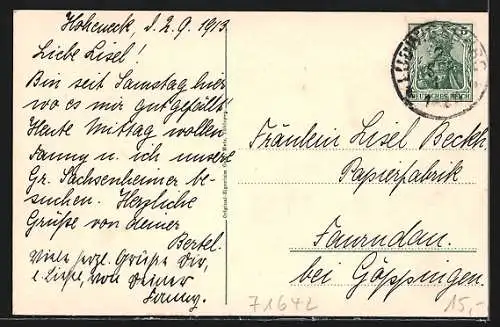 Hoheneck, d. 2. 9. 1913
Liebe Lisel!
Bin seit Samstag hier
wo es mir gut gefällt!
Heute Mittag wollen
Fanny u. ich unsere
Gr. Sachsenheimer be-
suchen. Herzliche
Grüße von deiner
Bertel.
Viele herzl. Grüße Dir,
l. Liesel, von Deiner
Fanny.
DEUTSCHES REICH
Fräulein Lisel Beckh
Papierfabrik
Faurndau.
bei Göppingen.
71642
15,-